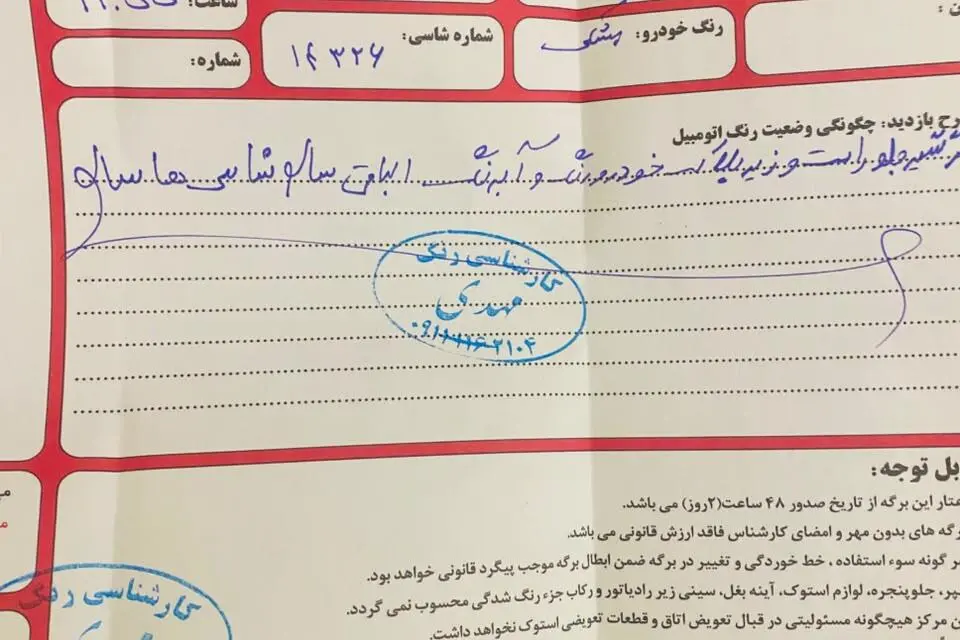 ساعت:
رنگ خودرو: مشکی
شماره شاسی: ۱۴۳۲۶
شماره:
رح بازدید: چگونگی وضعیت رنگ اتومبیل
جلو راست و خودرو رنگ و اتاق سالم شاسی ها سالم
کارشناسی رنگ
مهدی
۰۹۱۱۱۱۶۰۲۱۰۴
بل توجه:
عتبار این برگه از تاریخ صدور ۴۸ ساعت(۲روز) می باشد.
رگه های بدون مهر و امضای کارشناس فاقد ارزش قانونی می باشد.
هر گونه سوء استفاده ، خط خوردگی و تغییر در برگه ضمن ابطال برگه موجب پیگرد قانونی خواهد بود.
پر، جلوپنجره، لوازم استوک، آینه بغل، سینی زیر رادیاتور و رکاب جزء رنگ شدگی محسوب نمی گردد.
ن مرکز هیچگونه مسئولیتی در قبال تعویض اتاق و قطعات تعویضی استوک نخواهد داشت.
کارشناسی رنگ